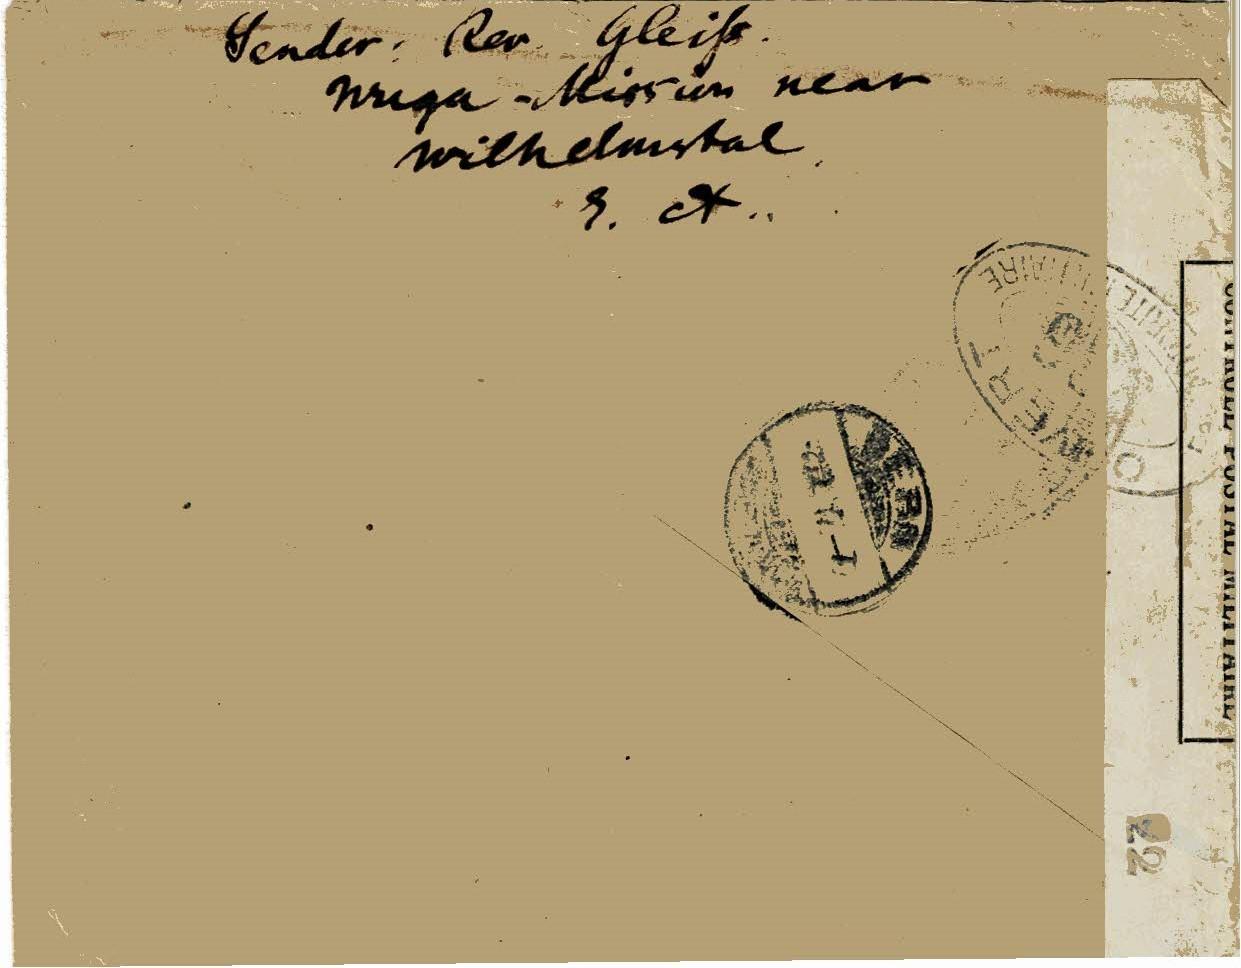 Sender: Rev. Gleiß.
Wuga-Mission near
Wilhelmstal.
E. A..
OUVERT
CONTROLE POSTAL MILITAIRE
22